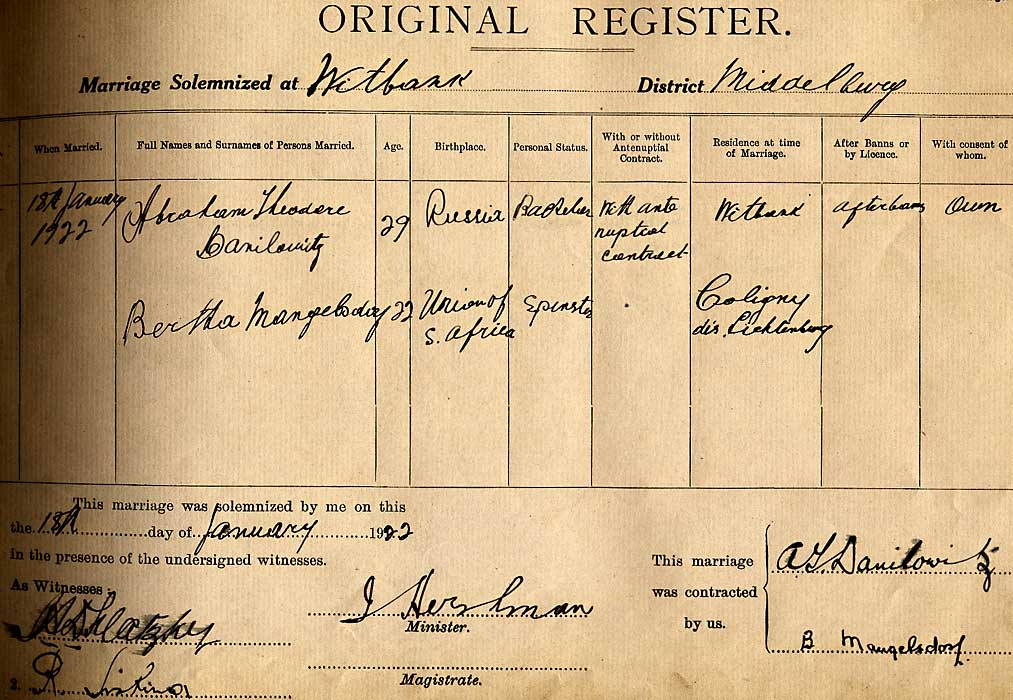 ORIGINAL REGISTER.
Marriage Solemnized at Witbank District Middelburg
When Married. Full Names and Surnames of Persons Married. Age. Birthplace. Personal Status. With or without Antenuptial Contract. Residence at time of Marriage. After Banns or by Licence. With consent of whom.
18th January 1922 Abraham Theodore Danilowitz 29 Russia Bachelor With ante nuptial contract Witbank after banns Own
Bertha Mangelsdorf 22 Union of S. Africa Spinster Coligny dis. Lichtenburg
This marriage was solemnized by me on this
the 18th day of January 1922
in the presence of the undersigned witnesses.
As Witnesses:
Klatzky
2. R.
J Hershman
Minister.
Magistrate.
This marriage
was contracted
by us.
A T. Danilowitz
B Mangelsdorf.